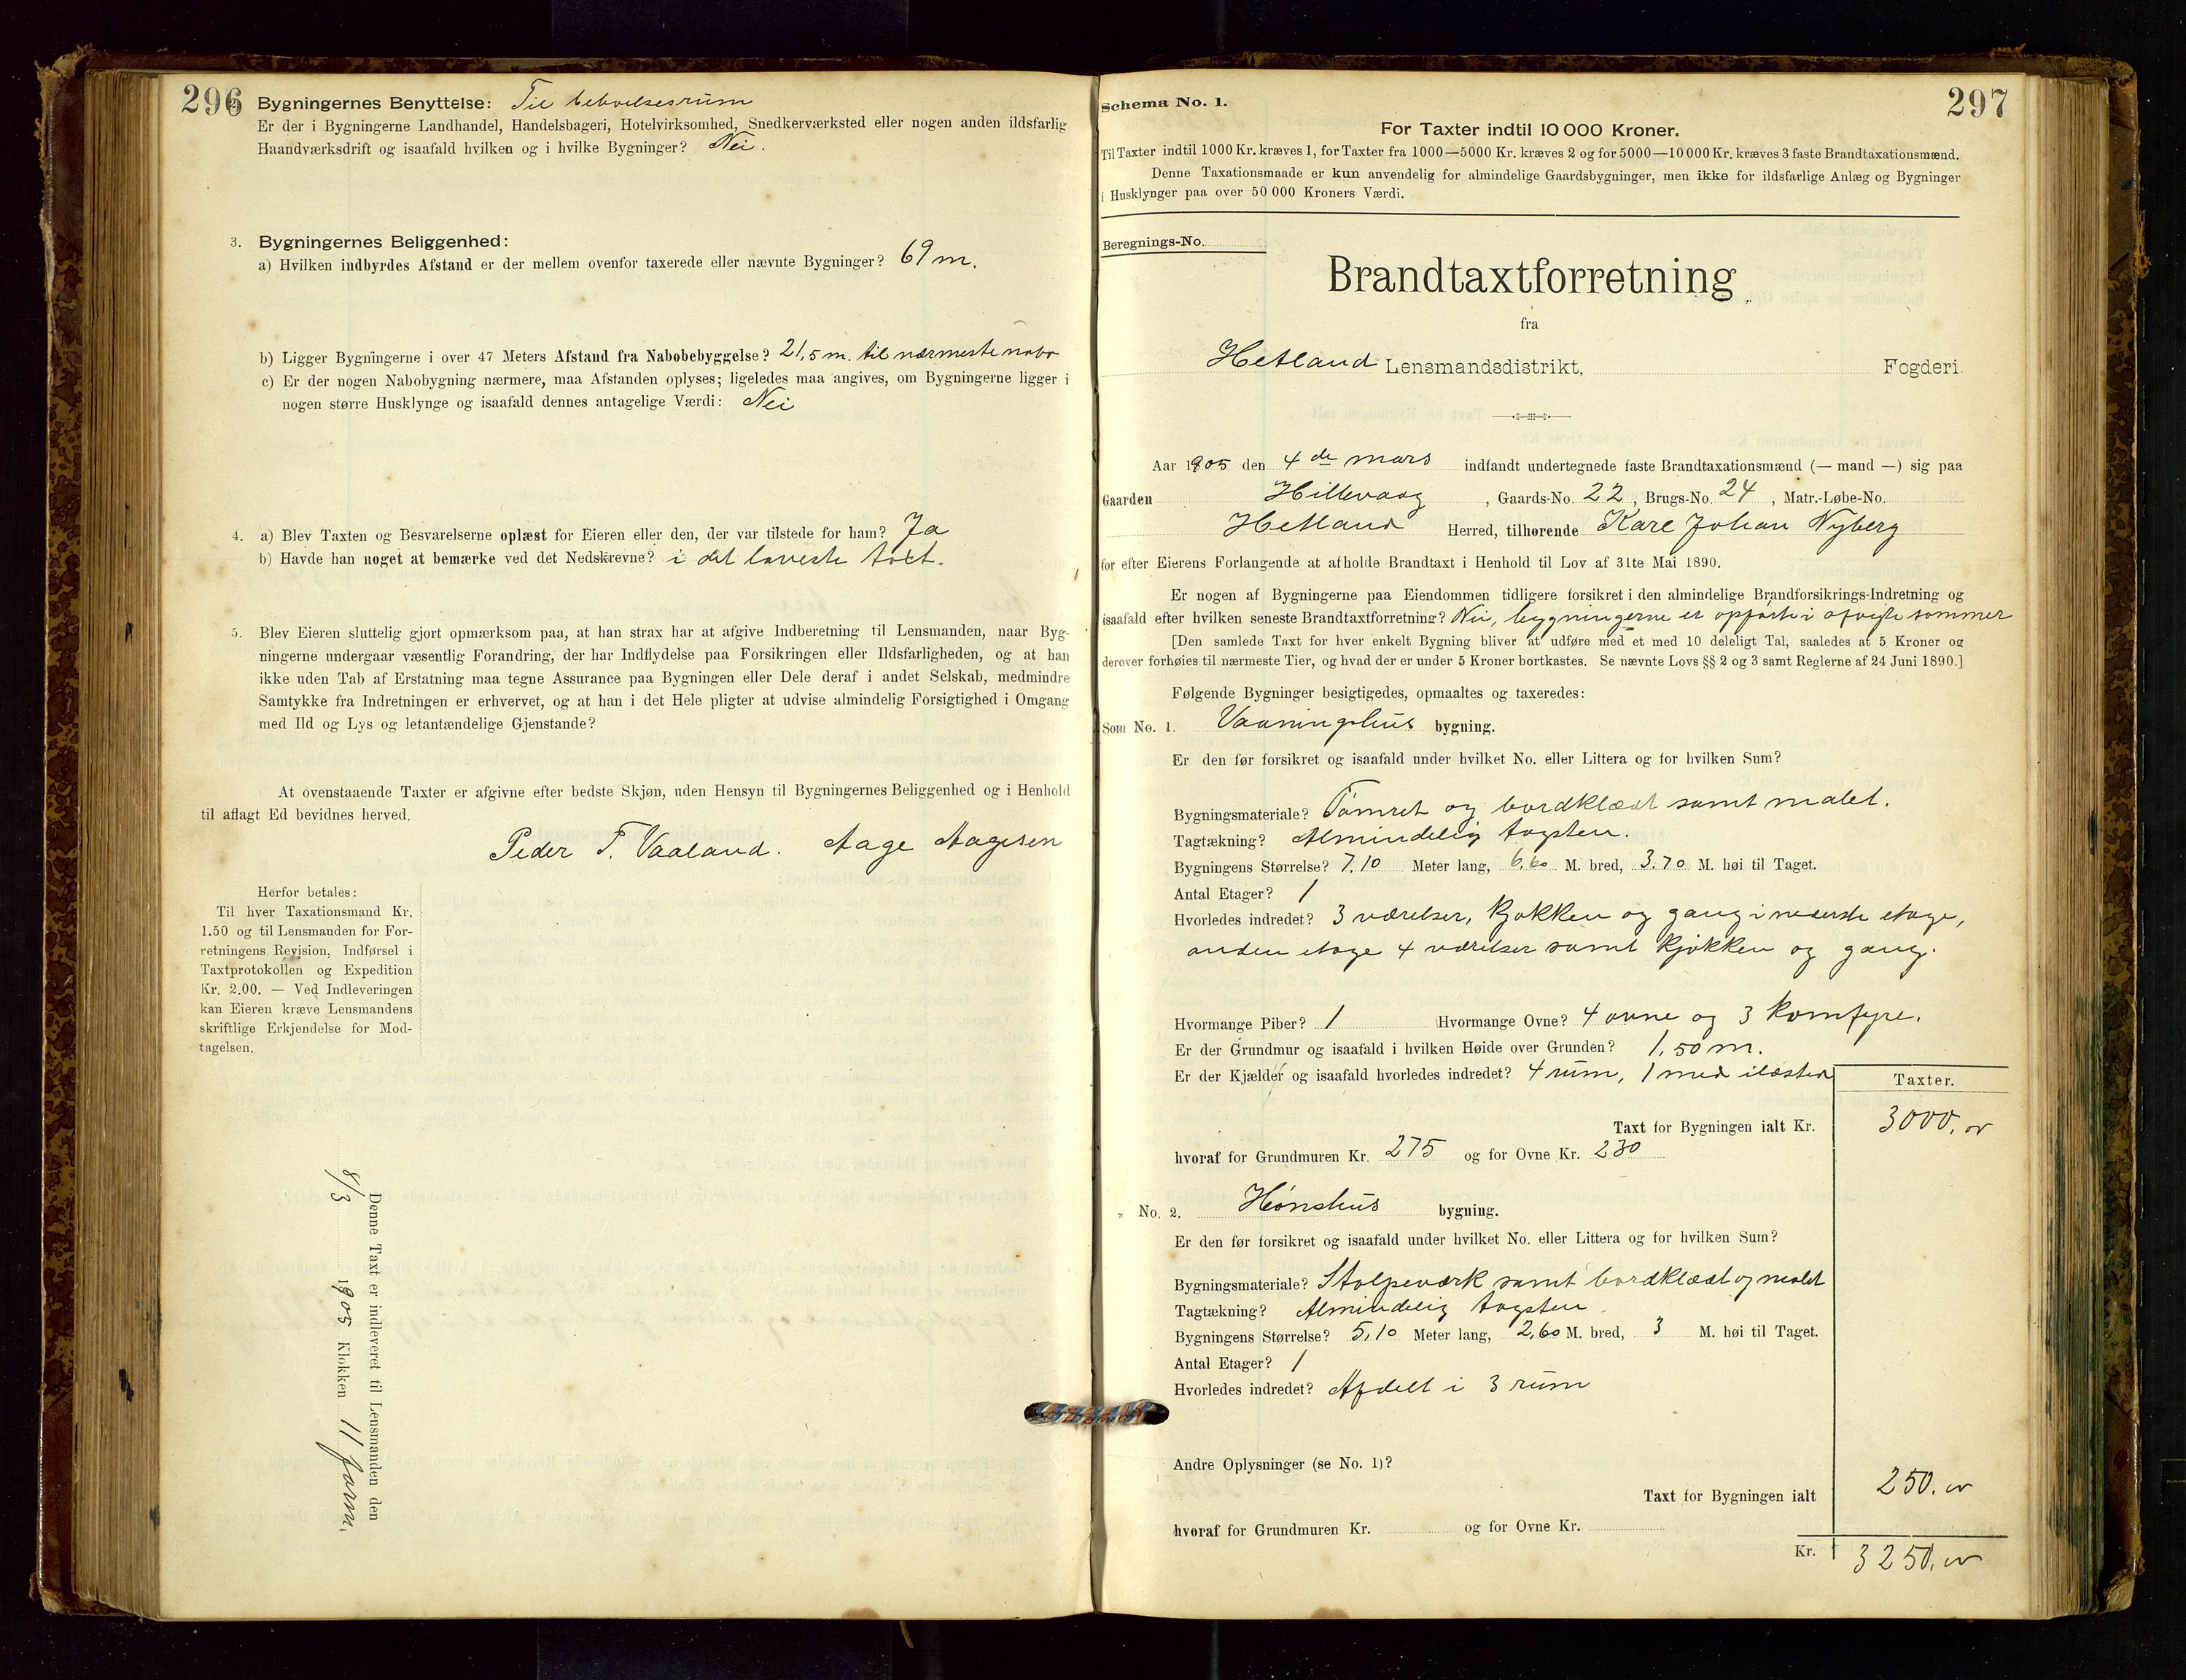 296
2. Bygningernes Benyttelse: Til bebvelsesrum
Er der i Bygningerne Landhandel, Handelsbageri, Hotelvirksomhed, Snedkerværksted eller nogen anden ildsfarlig
Haandværksdrift og isaafald hvilken og i hvilke Bygninger? Nei.
3. Bygningernes Beliggenhed:
a) Hvilken indbyrdes Afstand er der mellem ovenfor taxerede eller nævnte Bygninger? 69 m.
b) Ligger Bygningerne i over 47 Meters Afstand fra Nabobebyggelse? 21,5 m. til nærmeste nabo
c) Er der nogen Nabobygning nærmere, maa Afstanden oplyses; ligeledes maa angives, om Bygningerne ligger i
nogen større Husklynge og isaafald dennes antagelige Værdi: Nei
4. a) Blev Taxten og Besvarelserne oplæst for Eieren eller den, der var tilstede for ham? Ja
b) Havde han noget at bemærke ved det Nedskrevne? i det laveste taxt.
5. Blev Eieren sluttelig gjort opmærksom paa, at han strax har at afgive Indberetning til Lensmanden, naar Byg-
ningerne undergaar væsentlig Forandring, der har Indflydelse paa Forsikringen eller Ildsfarligheden, og at han
ikke uden Tab af Erstatning maa tegne Assurance paa Bygningen eller Dele deraf i andet Selskab, medmindre
Samtykke fra Indretningen er erhvervet, og at han i det Hele pligter at udvise almindelig Forsigtighed i Omgang
med Ild og Lys og letantændelige Gjenstande?
At ovenstaaende Taxter er afgivne efter bedste Skjøn, uden Hensyn til Bygningernes Beliggenhed og i Henhold
til aflagt Ed bevidnes herved.
Peder T. Vaaland. Aage Aagesen
Herfor betales:
Til hver Taxationsmand Kr.
1.50 og til Lensmanden for For-
retningens Revision, Indførsel i
Taxtprotokollen og Expedition
Kr. 2.00. — Ved Indleveringen
kan Eieren kræve Lensmandens
skriftlige Erkjendelse for Mod-
tagelsen.
Denne Taxt er indleveret til Lensmanden den
8/3 1905 Klokken 11 form.
Schema No. 1.
297
For Taxter indtil 10 000 Kroner.
Til Taxter indtil 1000 Kr. kræves 1, for Taxter fra 1000—5000 Kr. kræves 2 og for 5000—10 000 Kr. kræves 3 faste Brandtaxationsmænd.
Denne Taxationsmaade er kun anvendelig for almindelige Gaardsbygninger, men ikke for ildsfarlige Anlæg og Bygninger
i Husklynger paa over 50 000 Kroners Værdi.
Beregnings-No.
Brandtaxtforretning
fra
Hetland Lensmandsdistrikt, Fogderi.
Aar 1905 den 4de mars indfandt undertegnede faste Brandtaxationsmænd (— mand —) sig paa
Gaarden Hillevaag, Gaards-No. 22, Brugs-No. 24, Matr.-Løbe-No.
Hetland Herred, tilhørende Karl Johan Nyberg
for efter Eierens Forlangende at afholde Brandtaxt i Henhold til Lov af 31te Mai 1890.
Er nogen af Bygningerne paa Eiendommen tidligere forsikret i den almindelige Brandforsikrings-Indretning og
isaafald efter hvilken seneste Brandtaxtforretning? Nei, bygningerne er opførte i afvigte sommer
[Den samlede Taxt for hver enkelt Bygning bliver at udføre med et med 10 deleligt Tal, saaledes at 5 Kroner og
derover forhøies til nærmeste Tier, og hvad der er under 5 Kroner bortkastes. Se nævnte Lovs §§ 2 og 3 samt Reglerne af 24 Juni 1890.]
Følgende Bygninger besigtigedes, opmaaltes og taxeredes:
Som No. 1. Vaaningshus bygning.
Er den før forsikret og isaafald under hvilket No. eller Littera og for hvilken Sum?
Bygningsmateriale? Tømret og bordklædt samt malet.
Tagtækning? Almindelig tagsten.
Bygningens Størrelse? 7,10 Meter lang, 6,60 M. bred, 3,70 M. høi til Taget.
Antal Etager? 1
Hvorledes indredet? 3 værelser, kjøkken og gang i nederste etage,
anden etage 4 værelser samt kjøkken og gang.
Hvormange Piber? 1 Hvormange Ovne? 4 ovne og 3 komfyre.
Er der Grundmur og isaafald i hvilken Høide over Grunden? 1,50 m.
Er der Kjælder og isaafald hvorledes indredet? 4 rum, 1 med ildsted
Taxter.
Taxt for Bygningen ialt Kr. 3000,00
hvoraf for Grundmuren Kr. 275 og for Ovne Kr. 230
" No. 2. Hønshus bygning.
Er den før forsikret og isaafald under hvilket No. eller Littera og for hvilken Sum?
Bygningsmateriale? Stolpeværk samt bordklædt og malet
Tagtækning? Almindelig tagsten.
Bygningens Størrelse? 5,10 Meter lang, 2,60 M. bred, 3 M. høi til Taget.
Antal Etager? 1
Hvorledes indredet? Afdelt i 3 rum
Andre Oplysninger (se No. 1)?
Taxt for Bygningen ialt 250,00
hvoraf for Grundmuren Kr. og for Ovne Kr.
Kr. 3250,00